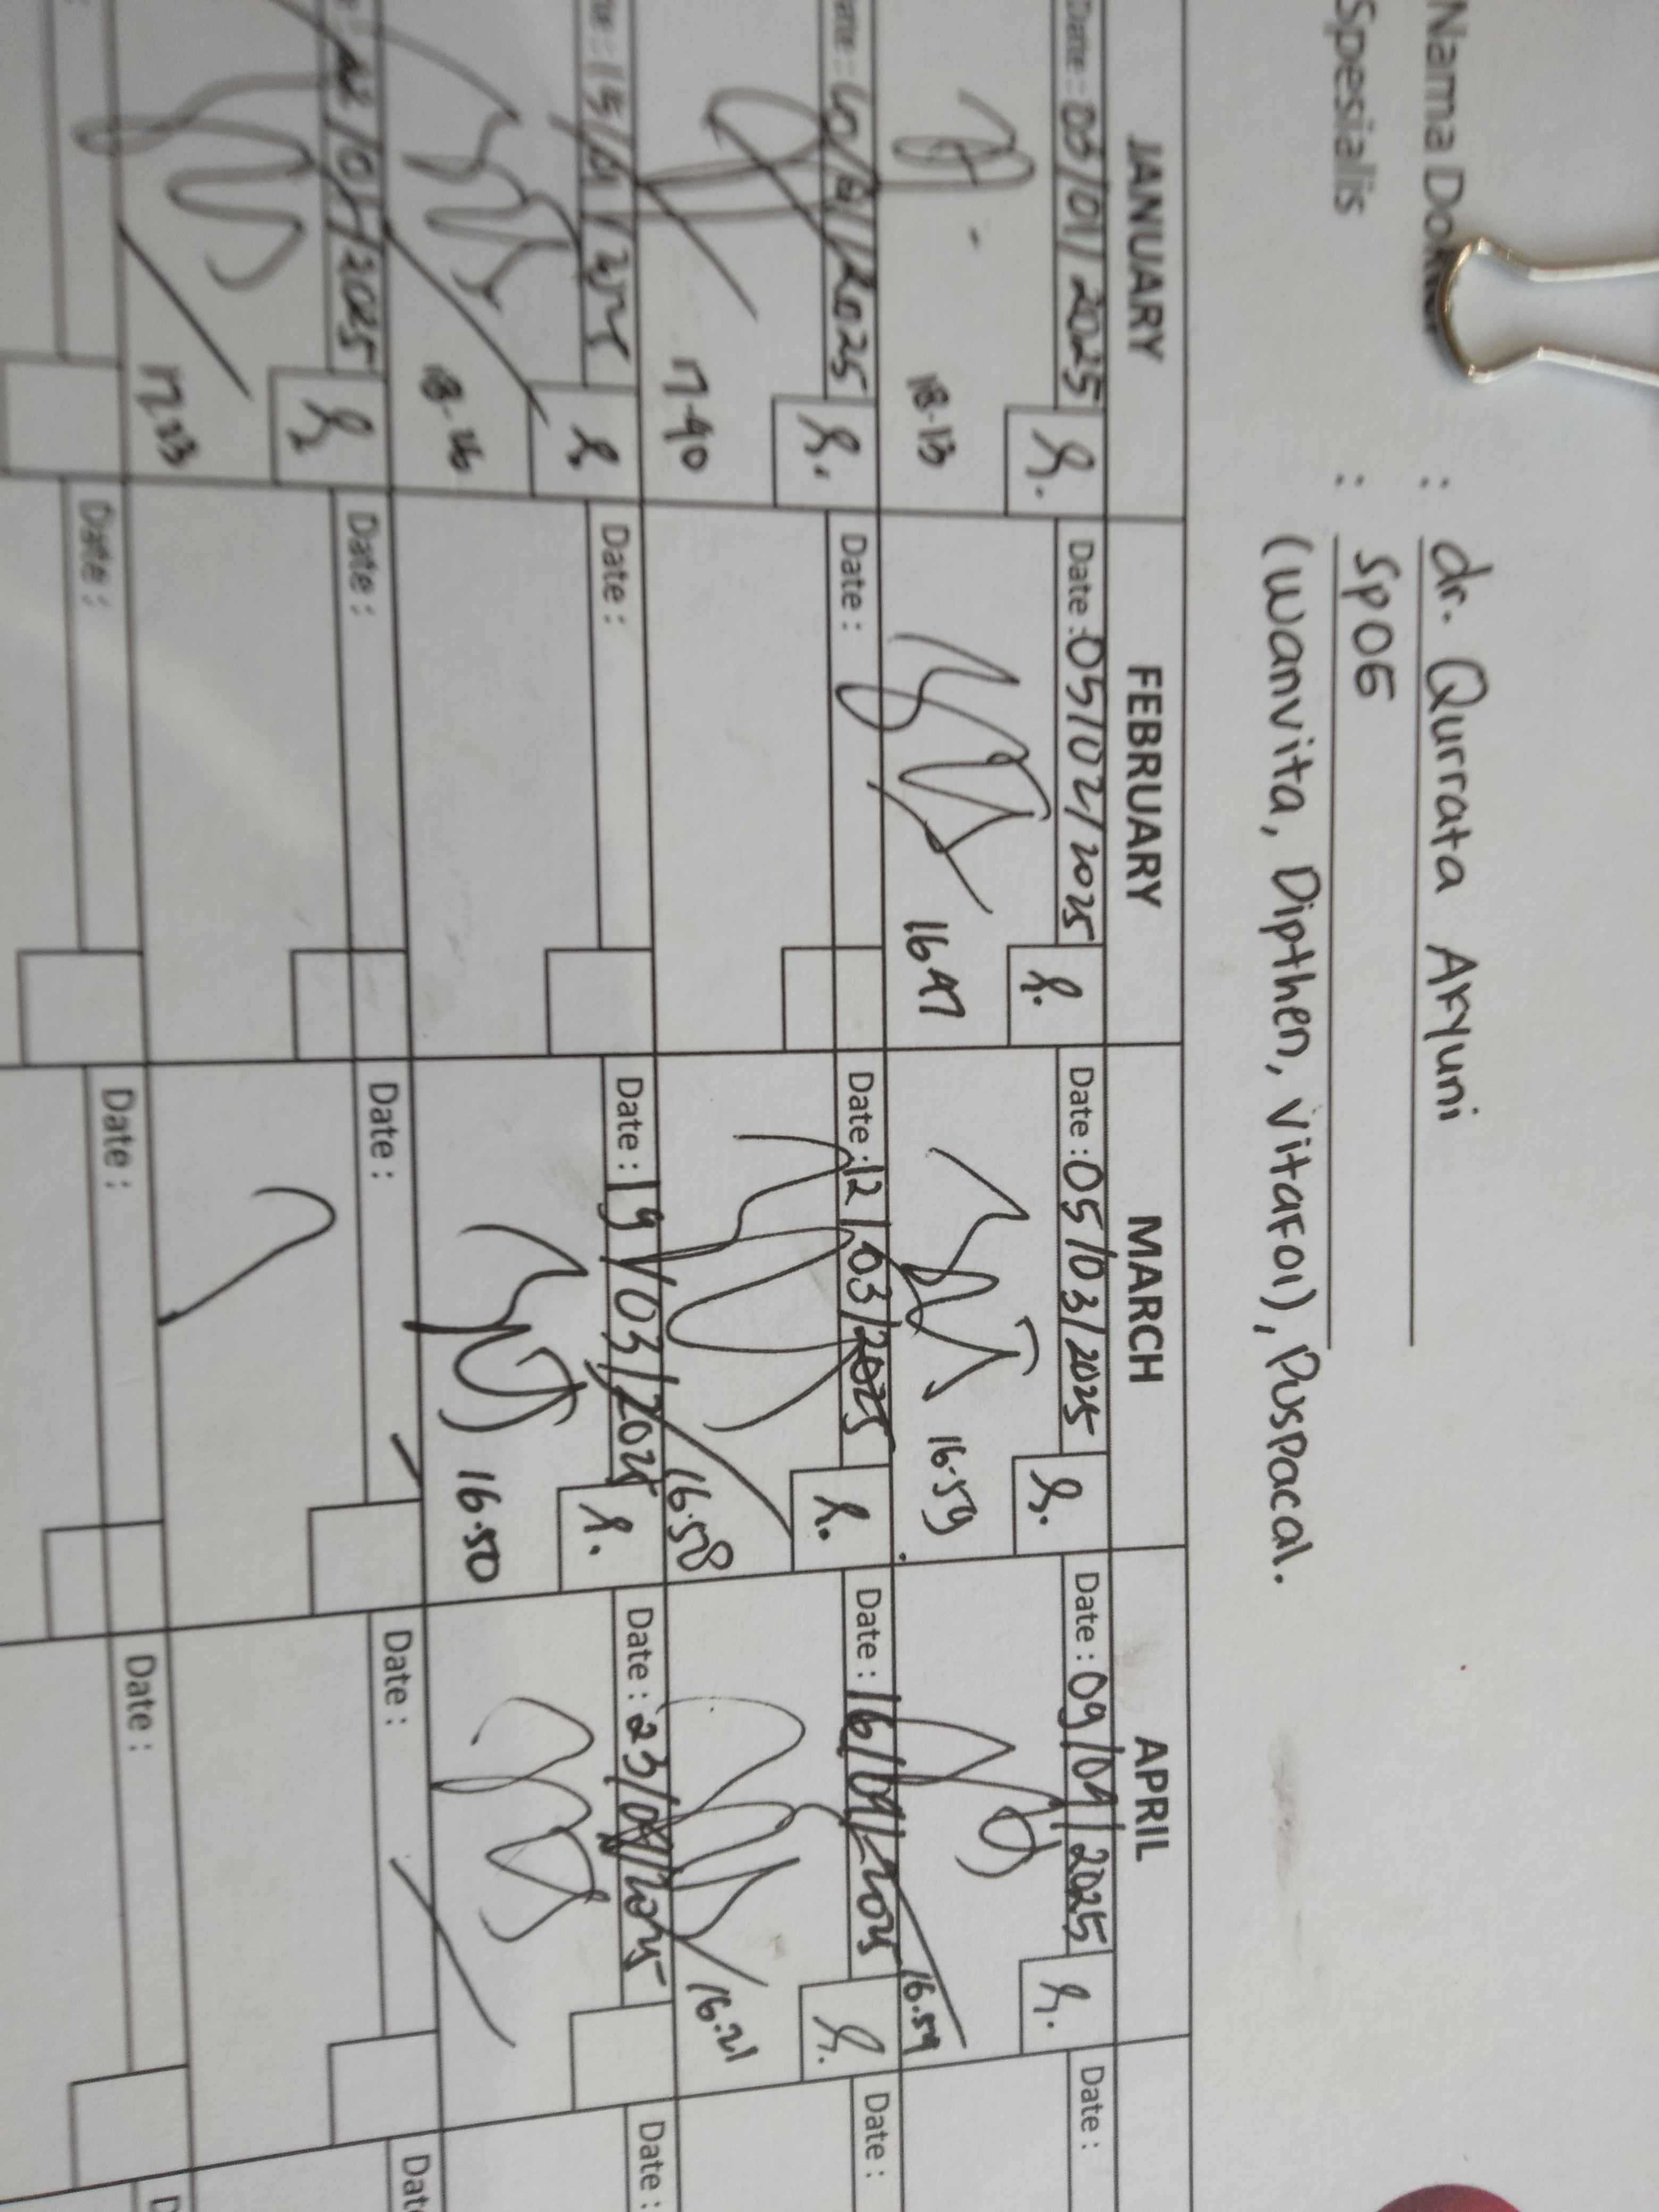 Nama Dokter : dr. Qurrata Akyuni
Spesialis : SpOG
(Wanvita, Dipthen, Vitafol), Puspacal.
JANUARY FEBRUARY MARCH APRIL
Date : 03/01/2025 Date : 05/02/2025 Date : 05/03/2025 Date : 09/04/2025 Date :
18-13 16.47 16.59 16.59
Date : /01/2025 Date : Date : 12/03/2025 Date : 16/04/2025 Date :
17-40 16.58 16.21
Date : 15/01/2025 Date : Date : 19/03/2025 Date : 23/04/2025 Date :
16.50
/01/2025 Date : Date : Date : Date
17.33
Date : Date : Date :